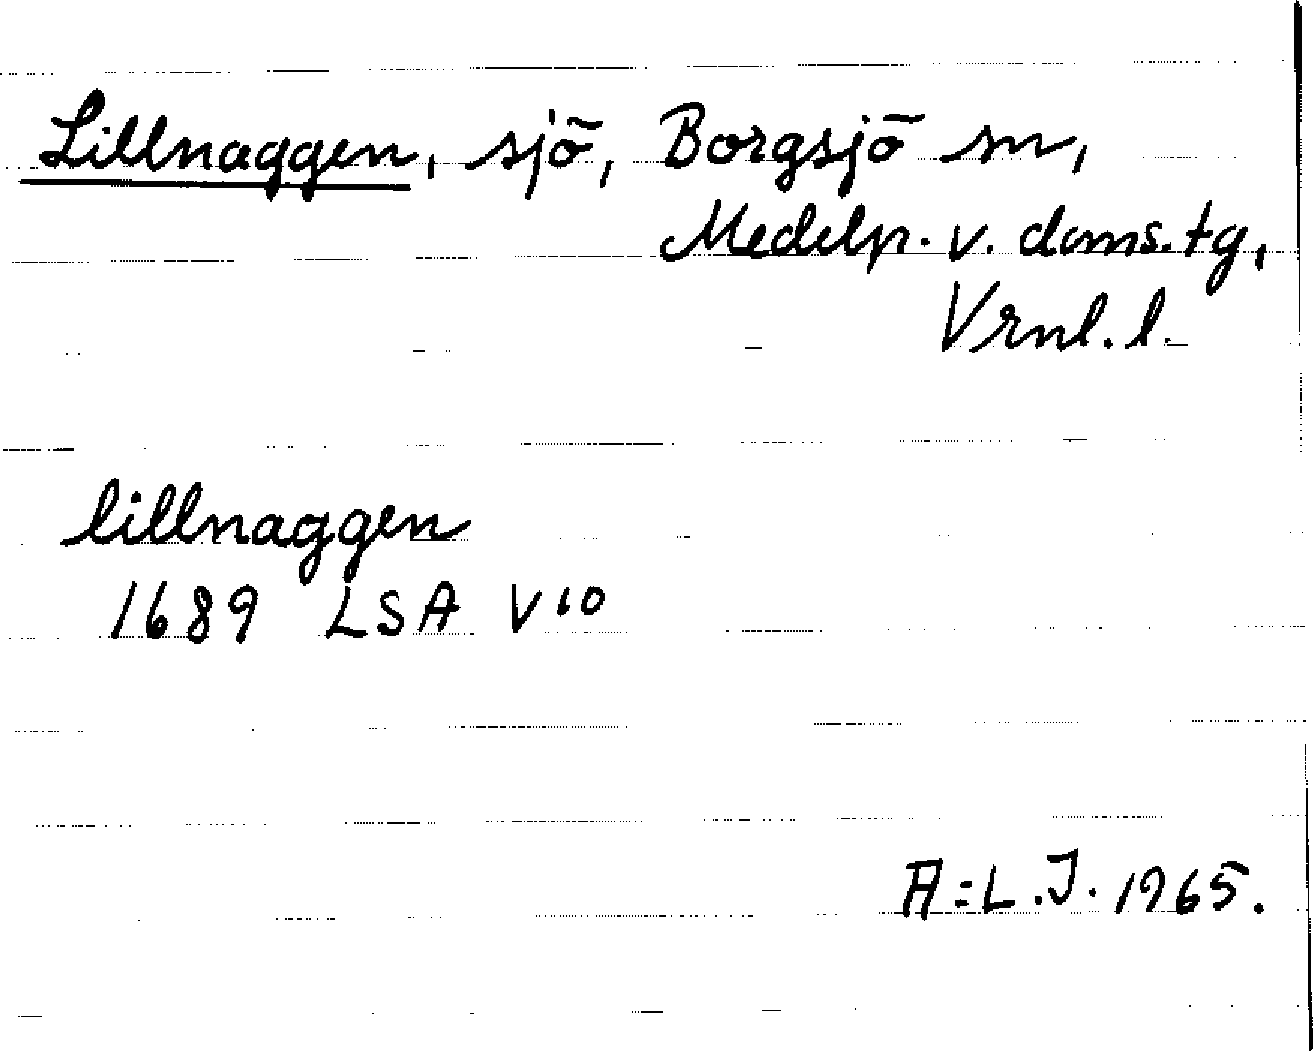 Lillnaggen, sjö, Borgsjö sn,
Medelp. v. doms.tg,
Vrnl. l.
lillnaggen
1689 LSA V 10
A:L.J. 1965.